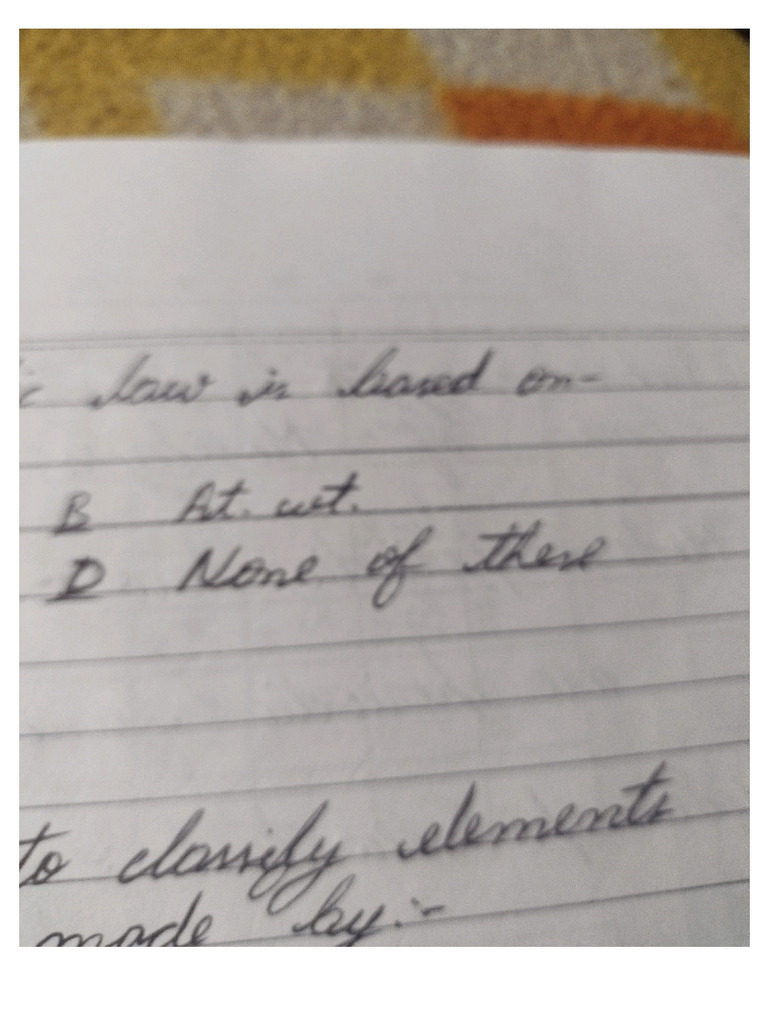 c law is based on-
B At. wt.
D None of these
to classify elements
made by:-